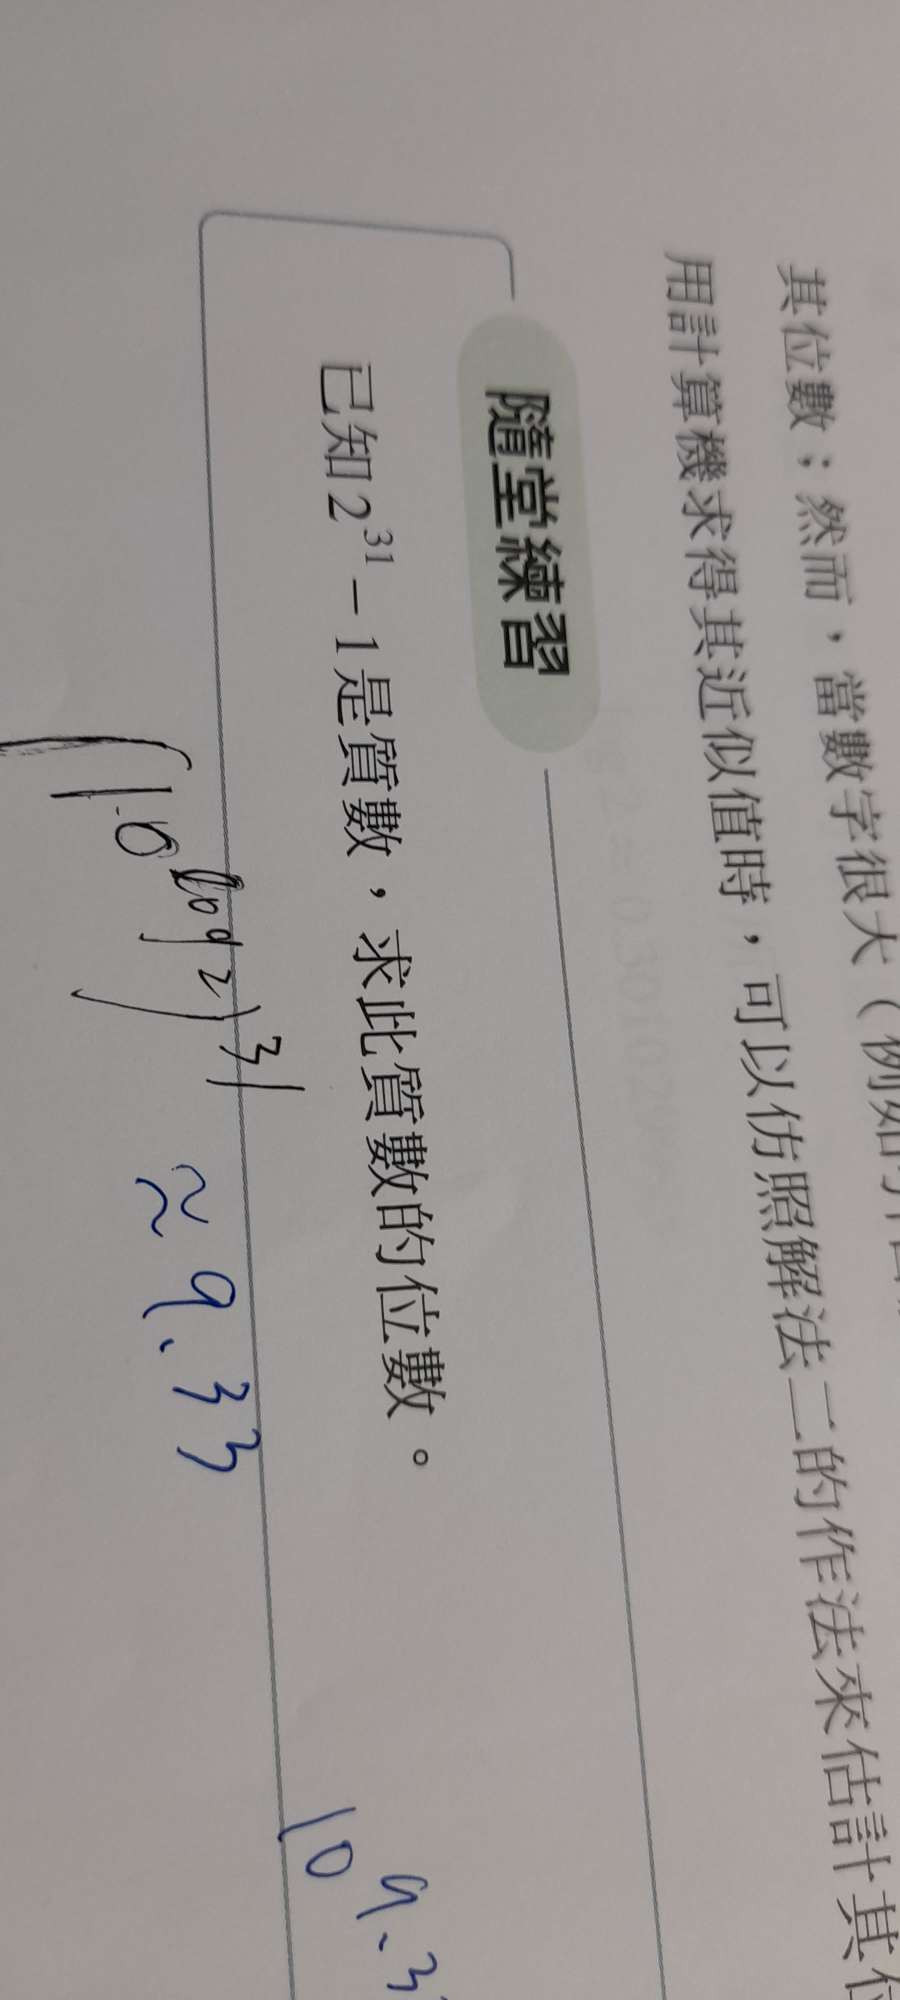 其位數；然而，當數字很大（例如
用計算機求得其近似值時，可以仿照解法二的作法來估計其位
隨堂練習
已知2³¹－1是質數，求此質數的位數。
(10^log2)^31 ≈ 9.33
10^9.3